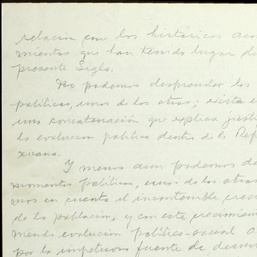 relación con los históricos acon
mientos que han tenido lugar d
presente Siglo.
No podemos desprender los
políticos, unos de los otros; existe
una concatenación que explica
la evolución política dentro de la Rep
xicana.
Y menos aun podemos de
momentos políticos, unos de los otros
mos en cuenta el incontenible crec
de la población, y con este crecimien
menda evolución político-social
por la impetuosa fuente de